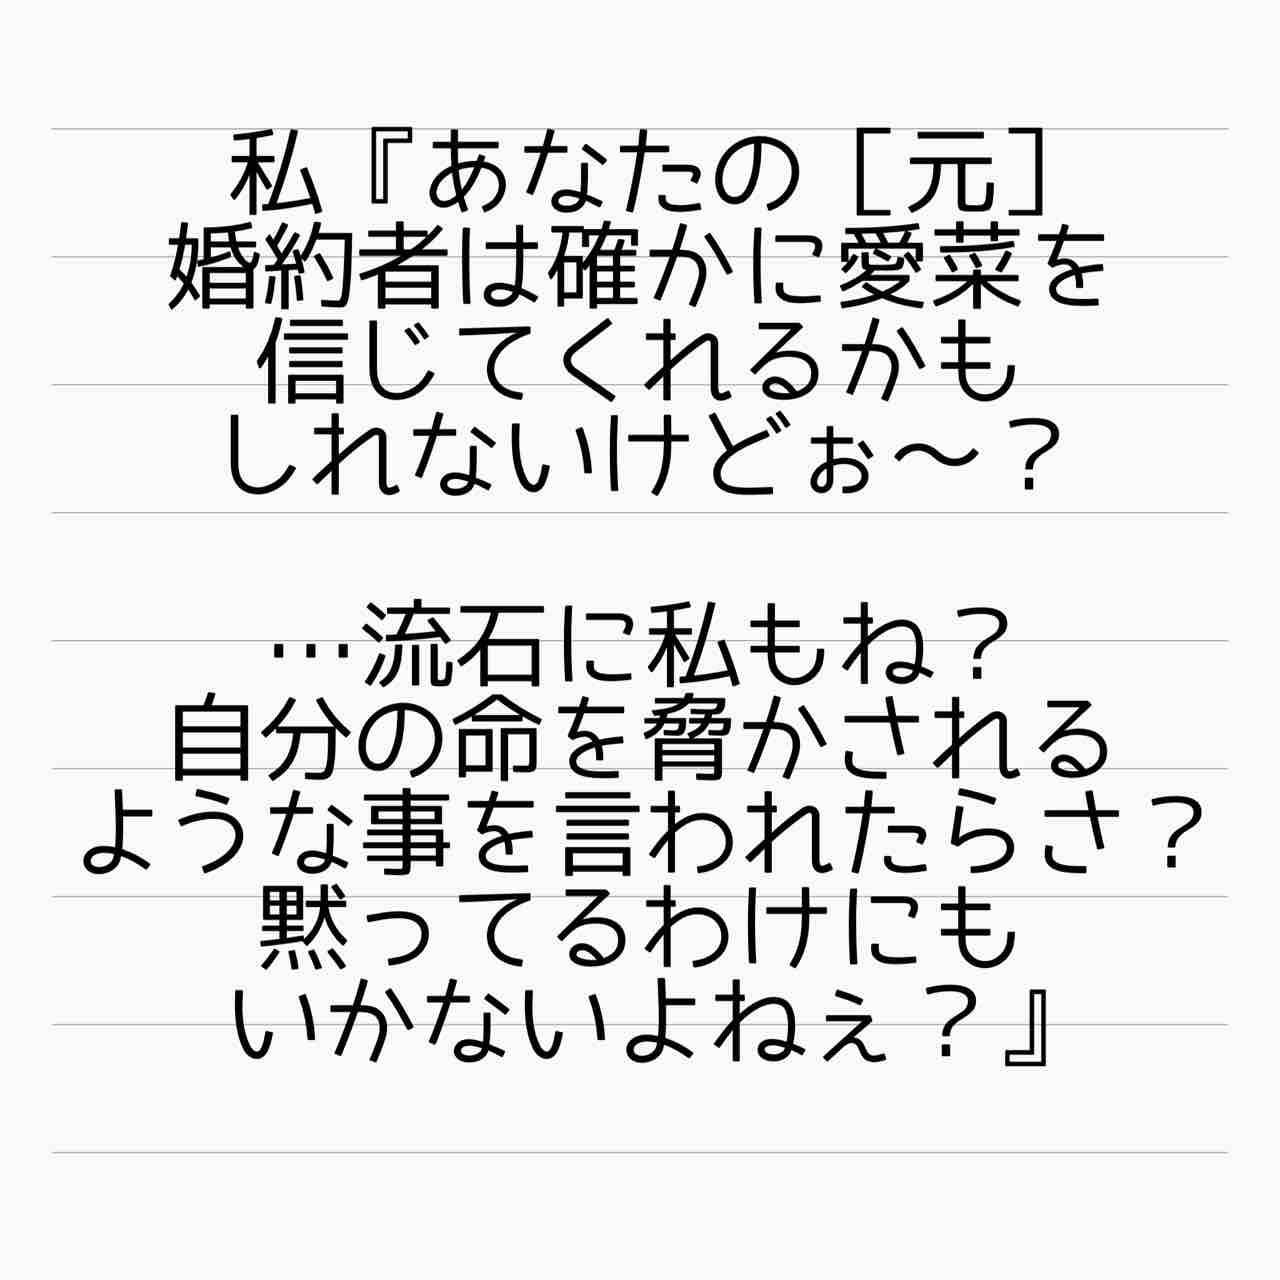 私『あなたの［元］
婚約者は確かに愛菜を
信じてくれるかも
しれないけどぉ～？
…流石に私もね？
自分の命を脅かされる
ような事を言われたらさ？
黙ってるわけにも
いかないよねぇ？』